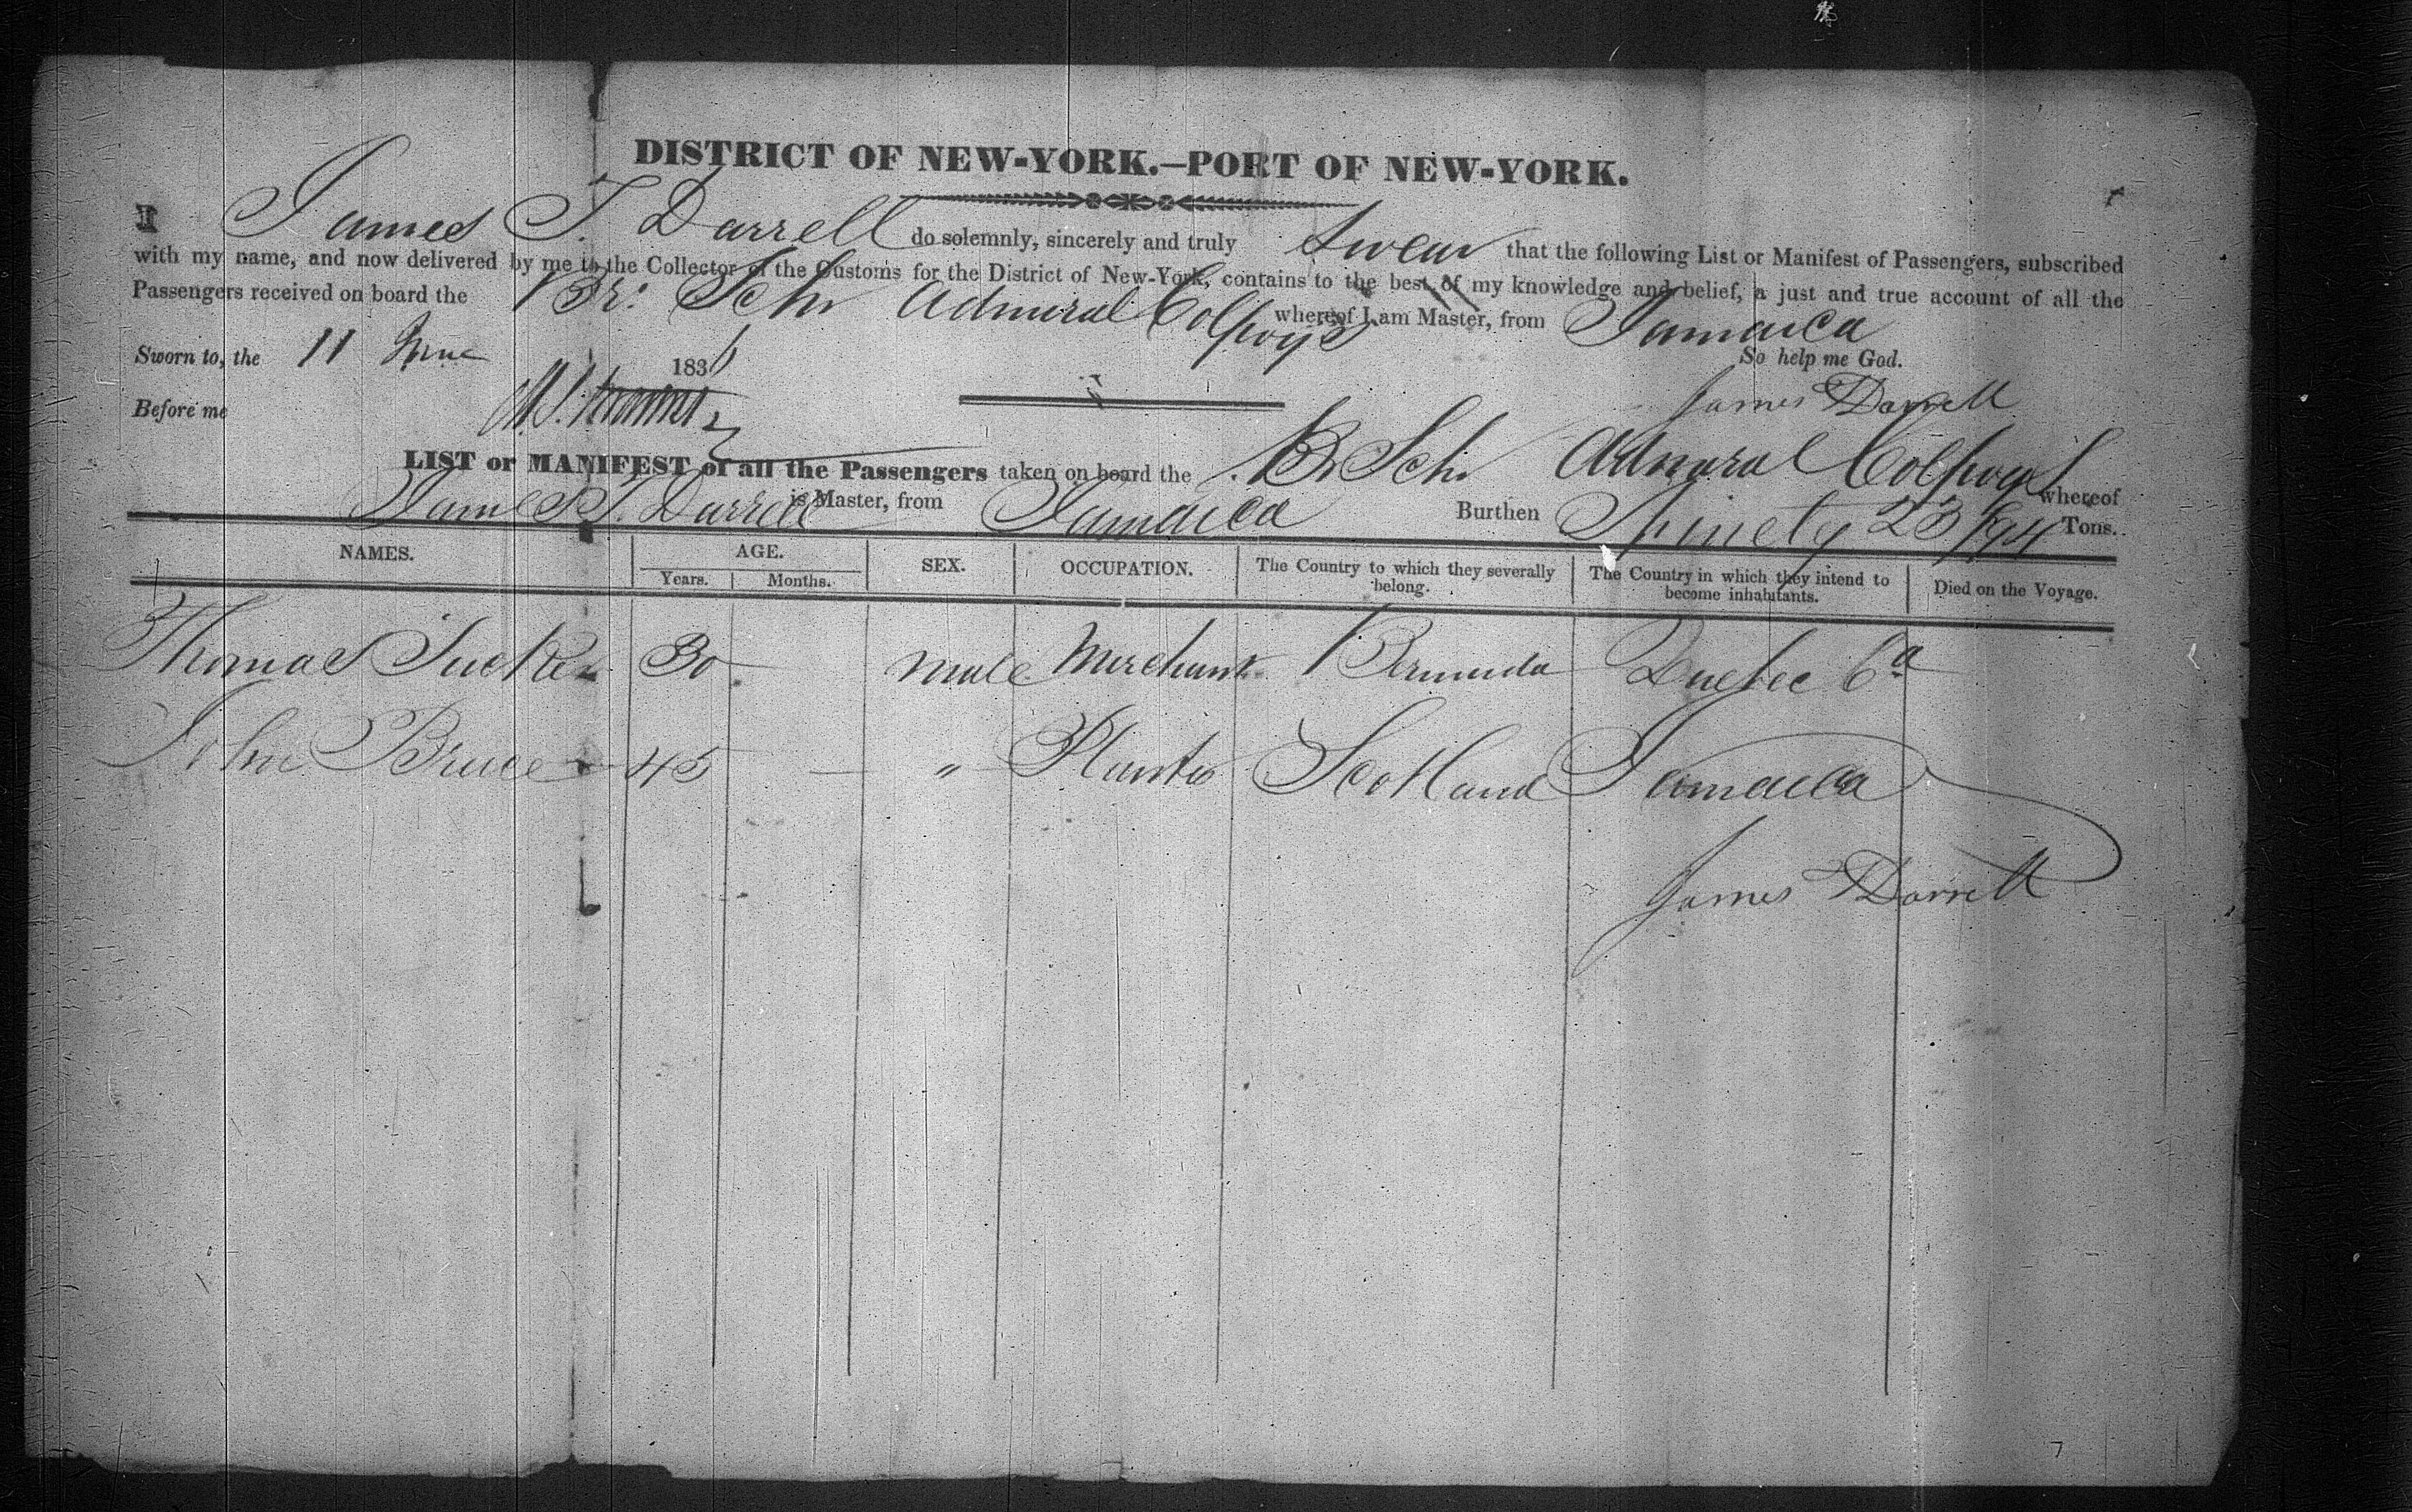 DISTRICT OF NEW-YORK.—PORT OF NEW-YORK.
I James T. Darrell do solemnly, sincerely and truly swear that the following List or Manifest of Passengers, subscribed
with my name, and now delivered by me to the Collector of the Customs for the District of New-York, contains to the best of my knowledge and belief, a just and true account of all the
Passengers received on board the Br. Schr Admiral Colpoys whereof I am Master, from Jamaica
Sworn to, the 11 June 1836 So help me God.
Before me James Darrell
LIST or MANIFEST of all the Passengers taken on board the Br Schr Admiral Colpoys whereof
James T. Darrell is Master, from Jamaica Burthen Ninety 23/94 Tons.
NAMES. AGE. SEX. OCCUPATION. The Country to which they severally belong. The Country in which they intend to become inhabitants. Died on the Voyage.
Years. Months.
Thomas Tucker 30 male Merchant Bermuda Quebec Ca
John Bruce 45 — " Planter Scotland Jamaica
James Darrell